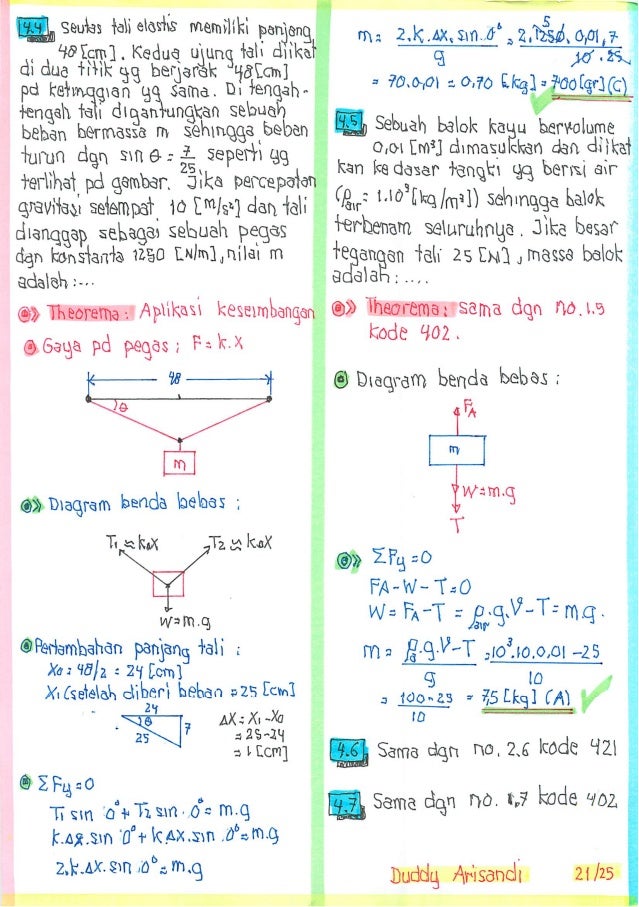 4.4 Seutas tali elastis memiliki panjang
48 [cm]. Kedua ujung tali diikat
di dua titik yg berjarak 48[cm]
pd ketinggian yg sama. Di tengah-
tengah tali digantungkan sebuah
beban bermassa m sehingga beban
turun dgn sin θ = 7/25 seperti yg
terlihat pd gambar. Jika percepatan
gravitasi setempat 10 [m/s²] dan tali
dianggap sebagai sebuah pegas
dgn konstanta 1250 [N/m], nilai m
adalah :...
Theorema: Aplikasi keseimbangan
Gaya pd pegas ; F = k.x
48
θ
m
Diagram benda bebas ;
T1 ≈ kΔx T2 ≈ kΔx
W = m.g
Pertambahan panjang tali :
X0 = 48/2 = 24 [cm]
X1 (setelah diberi beban = 25 [cm]
24
θ
25
7
ΔX = X1 - X0
= 25-24
= 1 [cm]
ΣFy = 0
T1 sin θ° + T2 sin θ° = m.g
k.Δx.sin θ° + k.Δx.sin θ° = m.g
2.k.Δx.sin θ° = m.g
m = 2.k.Δx.sin θ° / g = 2.1250.0,01.7 / 10.25
5
= 70.0,01 = 0,70 [kg] = 700[gr] (C)
4.5 Sebuah balok kayu bervolume
0,01 [m³] dimasukkan dan diikat
kan ke dasar tangki yg berisi air
(ρair = 1.10³ [kg/m³]) sehingga balok
terbenam seluruhnya. Jika besar
tegangan tali 25 [N], massa balok
adalah : ....
Theorema: sama dgn no. 1.5
kode 402.
Diagram benda bebas ;
FA
m
W = m.g
T
ΣFy = 0
FA - W - T = 0
W = FA - T = ρair.g.V - T = m.g.
m = ρa.g.V - T / g = 10³.10.0,01 - 25 / 10
= 100-25 / 10 = 7,5 [kg] (A)
4.6 Sama dgn no. 2.6 kode 421
4.7 Sama dgn no. 1,7 kode 402
Duddy Arisandi 21/25